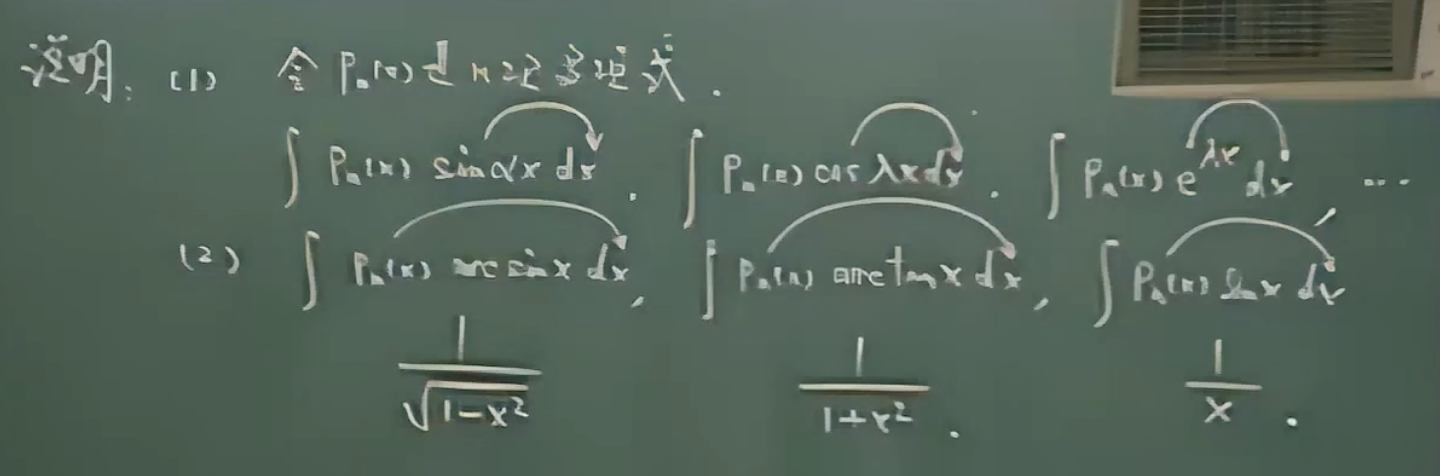 说明: (1) 令 Pₙ(x) 是 n 次多项式.
∫ Pₙ(x) sin αx dx. ∫ Pₙ(x) cos λx dx. ∫ Pₙ(x) e^{λx} dx, ...
(2) ∫ Pₙ(x) arcsin x dx, ∫ Pₙ(x) arctan x dx, ∫ Pₙ(x) ln x dx
1/√(1-x²) 1/(1+x²). 1/x.